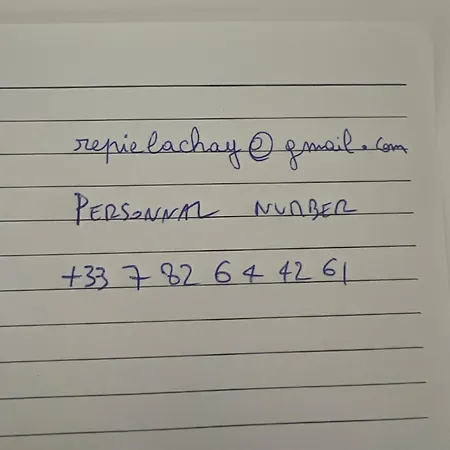 repielachay@gmail.com
PERSONNAL NUMBER
+33 7 82 64 42 61